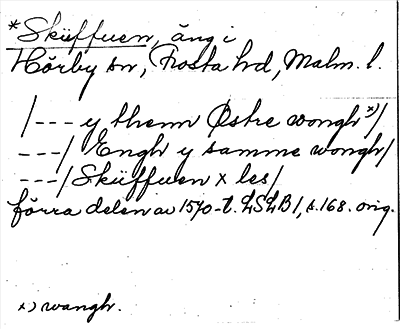 *Sküffuen, äng i
Hörby sn, Frosta hd, Malm. l.
/--- y themn Østre wongh x)/
---/ Engh y samme wongh/
---/ Sküffuen x les/
förra delen av 1570-t. LSLB 1, s. 168. orig.
x) wangh.